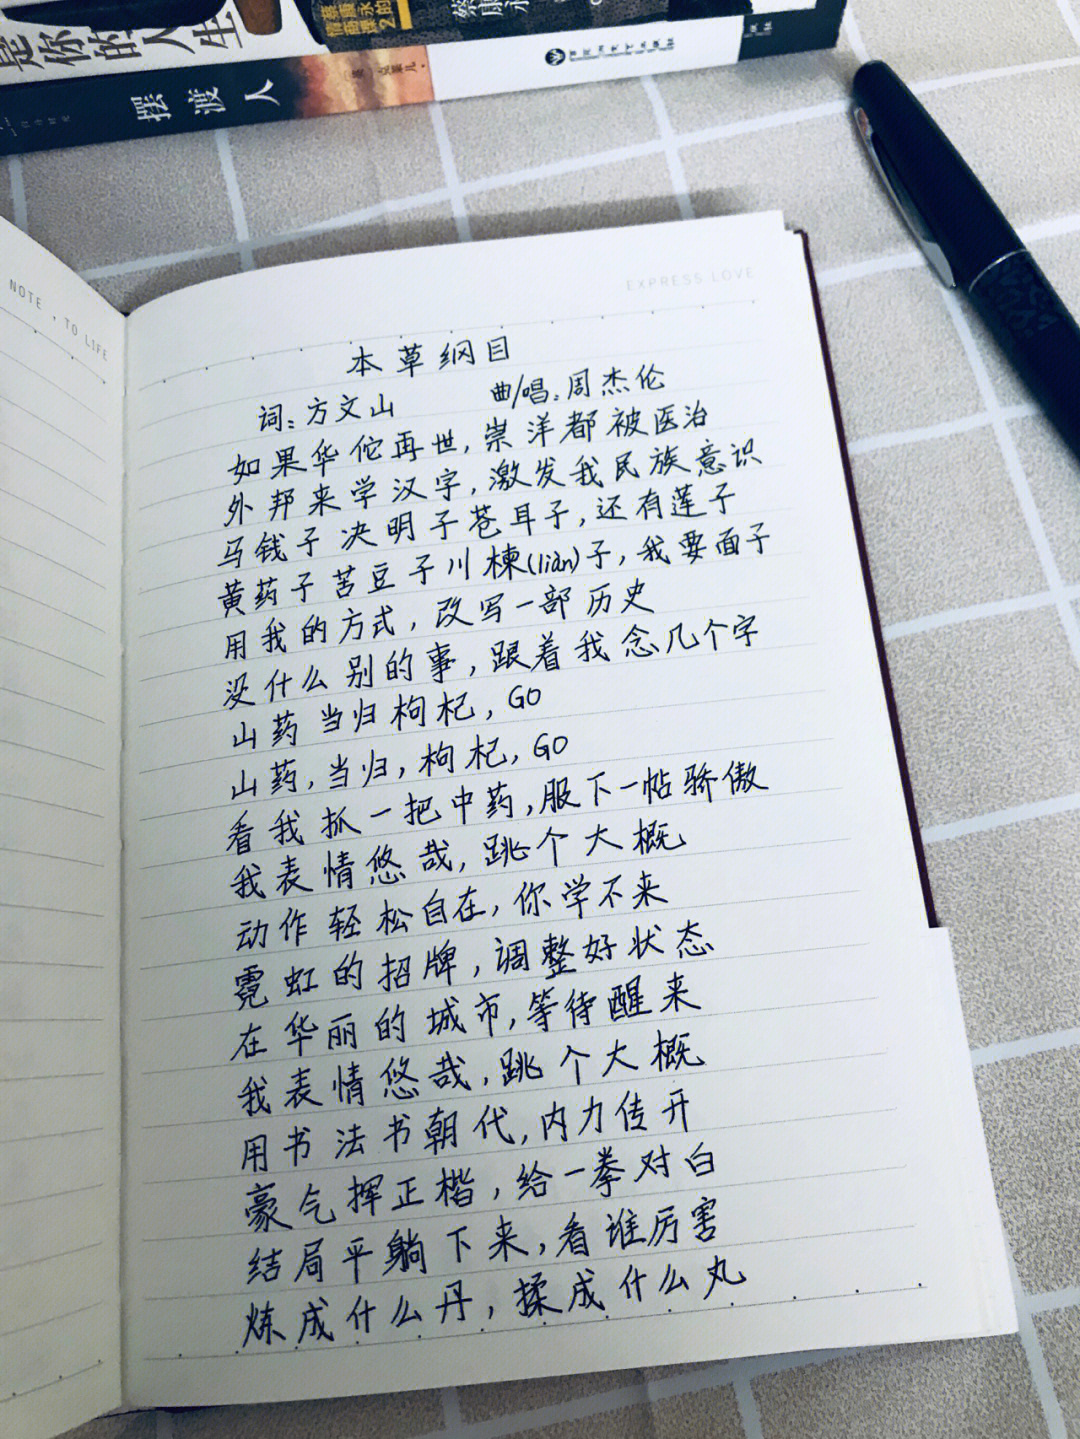 是你的人生
蔡康永的
情商课2
蔡康永
摆渡人
百花洲文艺出版社
NOTE , TO LIFE
EXPRESS LOVE
本草纲目
词:方文山 曲/唱:周杰伦
如果华佗再世,崇洋都被医治
外邦来学汉字,激发我民族意识
马钱子决明子苍耳子,还有莲子
黄药子苦豆子川楝(liàn)子,我要面子
用我的方式,改写一部历史
没什么别的事,跟着我念几个字
山药当归枸杞,GO
山药,当归,枸杞,GO
看我抓一把中药,服下一帖骄傲
我表情悠哉,跳个大概
动作轻松自在,你学不来
霓虹的招牌,调整好状态
在华丽的城市,等待醒来
我表情悠哉,跳个大概
用书法书朝代,内力传开
豪气挥正楷,给一拳对白
结局平躺下来,看谁厉害
炼成什么丹,揉成什么丸